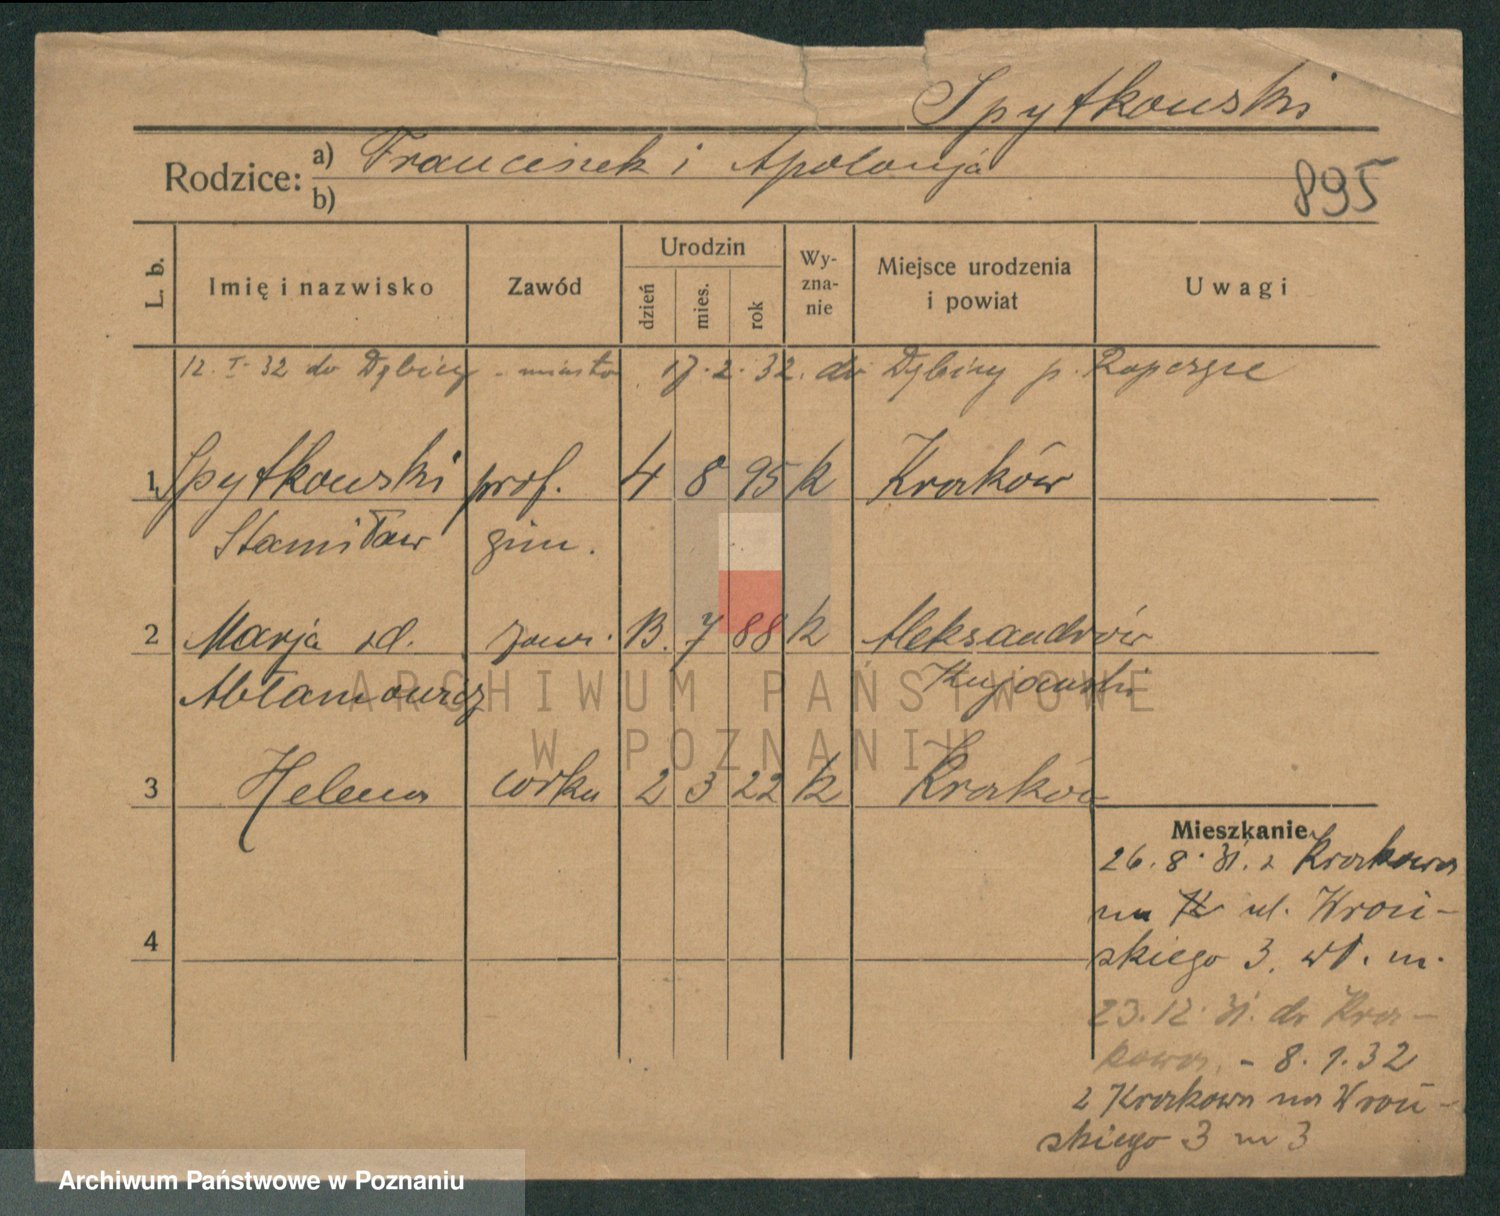 Spytkowski
Rodzice: a) Franciszek i Apolonja
b)
895
L. b.
Imię i nazwisko
Zawód
Urodzin
dzień
mies.
rok
Wy-
zna-
nie
Miejsce urodzenia
i powiat
Uwagi
12. I. 32 do Dębicy - miasto 17. 2. 32. do Dębicy p. Ropczyce
1 Spytkowski prof. 4 8 95 k Kraków
Stanisław gim.
2 Marja zd. 13. 7 88 k Aleksandrów
Abłamowicz Kujawski
3 Helena córka 2 3 22 k Kraków
Mieszkanie
26. 8. 31. z Krakowa
na ul. Wroń-
skiego 3. wł. m.
4
23. 12. 31. do Kra-
kowa. - 8. 1. 32
z Krakowa na Wroń-
skiego 3 m 3
ARCHIWUM PAŃSTWOWE
W POZNANIU
Archiwum Państwowe w Poznaniu